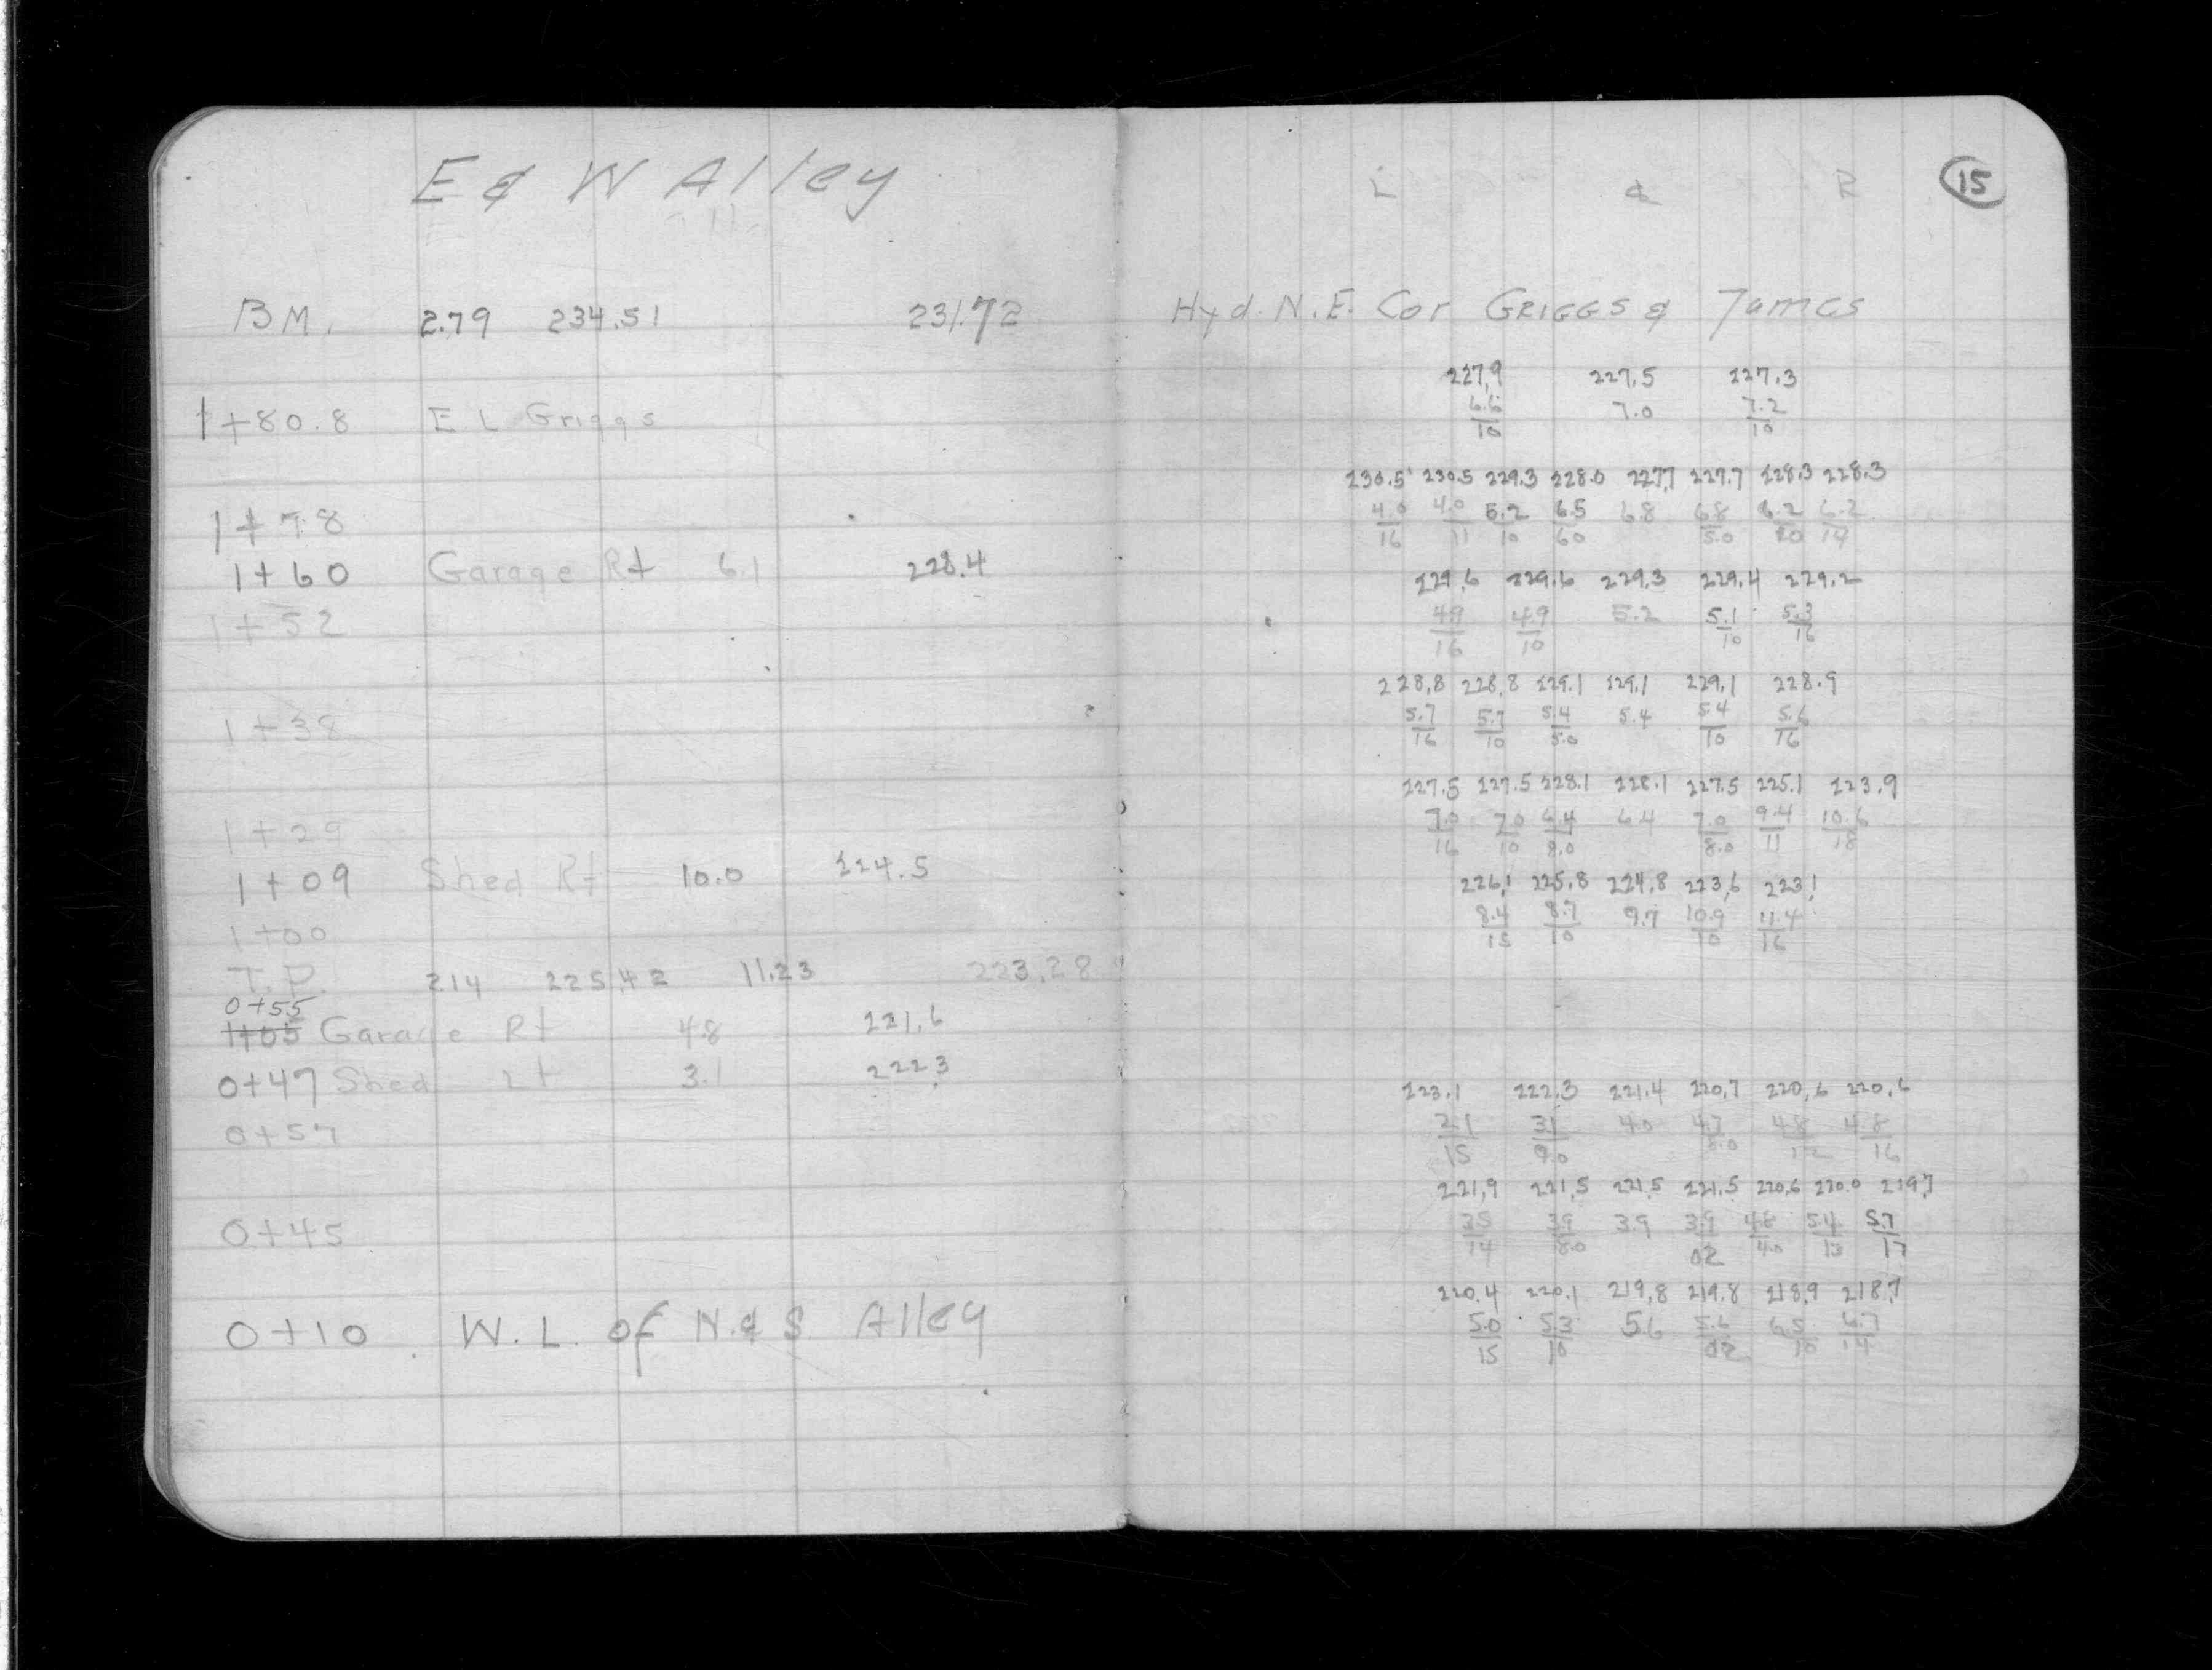 E & W Alley
B M. 2.79 234.51 231.72
1+80.8 E L Griggs
1+78
1+60 Garage Rt 6.1 228.4
1+52
1+38
1+29
1+09 Shed Rt 10.0 224.5
1+00
T.P. 2.14 225.42 11.23 223.28
0+55
1+05 Garage Rt 4.8 221.6
0+47 Shed Lt 3.1 222.3
0+57
0+45
0+10 W.L. of N & S Alley
L ℄ R 15
Hyd. N.E. Cor GRIGGS & James
227.9 227.5 227.3
6.6 7.0 7.2
10 10
230.5 230.5 229.3 228.0 227.7 227.7 228.3 228.3
4.0 4.0 5.2 6.5 6.8 6.8 6.2 6.2
16 11 10 60 5.0 10 14
229.6 229.6 229.3 229.4 229.2
4.9 4.9 5.2 5.1 5.3
16 10 10 16
228.8 228.8 229.1 229.1 229.1 228.9
5.7 5.7 5.4 5.4 5.4 5.6
16 10 5.0 10 16
227.5 227.5 228.1 228.1 227.5 225.1 223.9
7.0 7.0 6.4 6.4 7.0 9.4 10.6
16 10 8.0 8.0 11 18
226.1 225.8 224.8 223.6 223.1
8.4 8.7 9.7 10.9 11.4
15 10 10 16
223.1 222.3 221.4 220.7 220.6 220.6
2.1 3.1 4.0 4.7 4.8 4.8
15 9.0 8.0 12 16
221.9 221.5 221.5 221.5 220.6 220.0 219.7
3.5 3.9 3.9 3.9 4.8 5.4 5.7
14 8.0 02 4.0 13 17
220.4 220.1 219.8 219.8 218.9 218.7
5.0 5.3 5.6 5.6 6.5 6.7
15 10 02 10 14